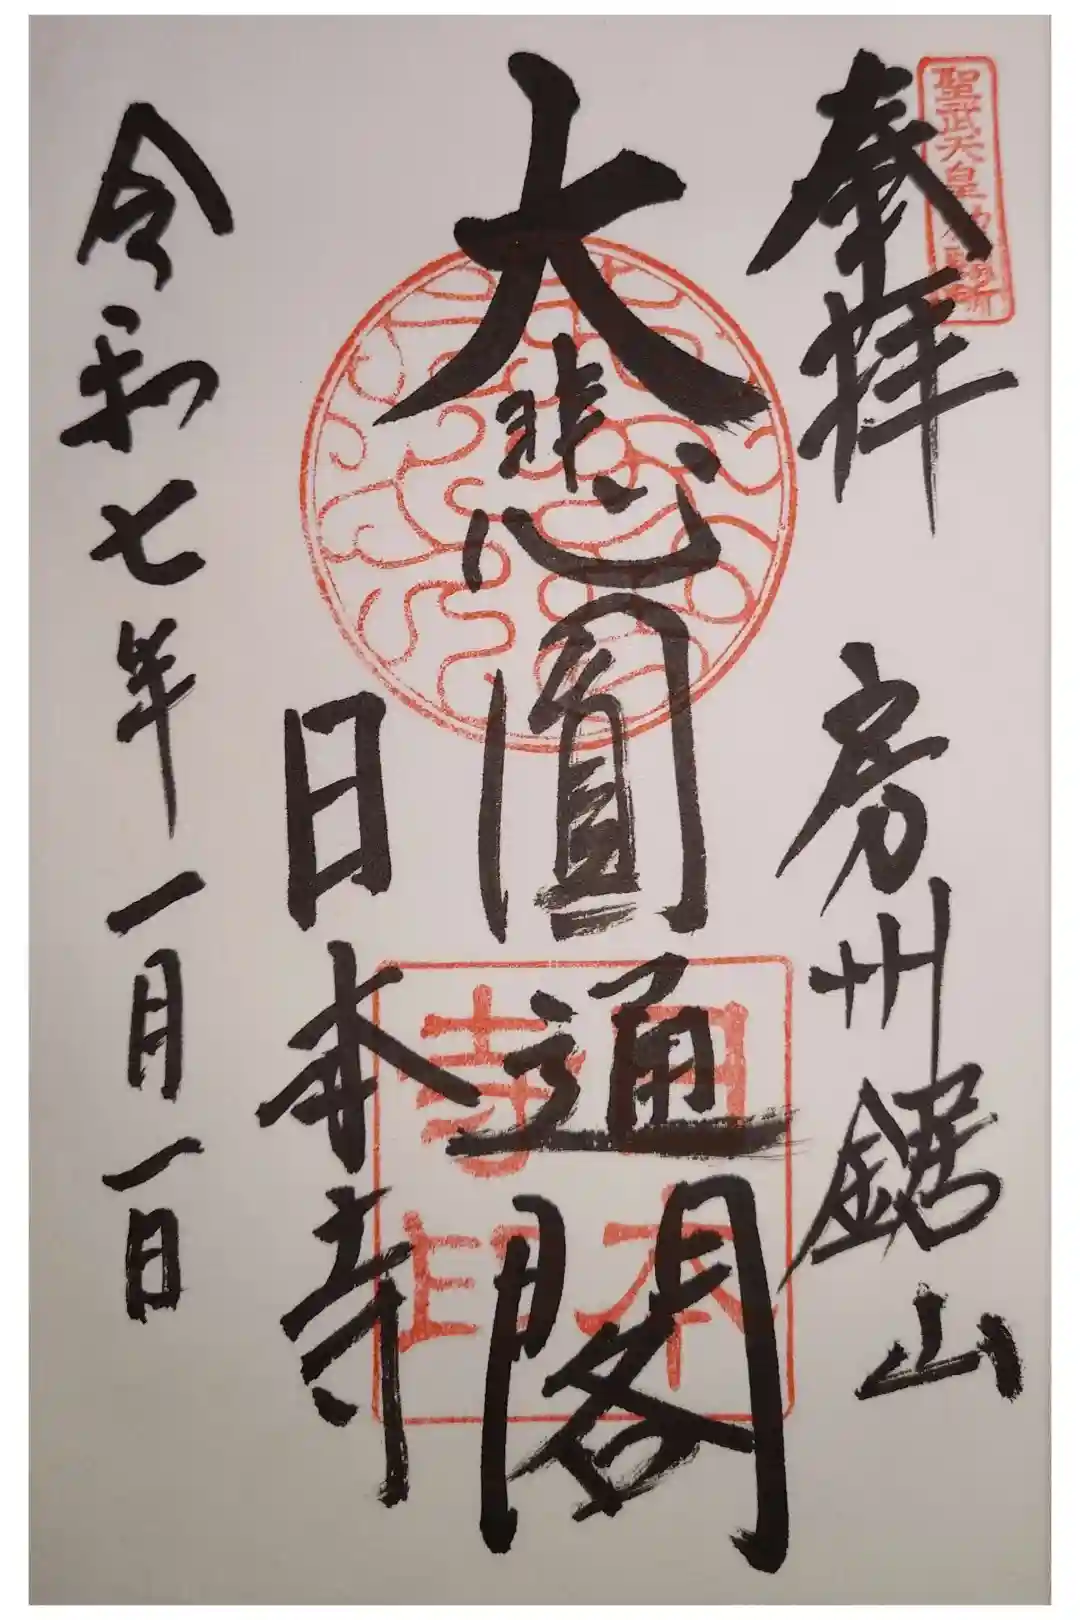 聖武天皇勅願所
奉拝 房州鋸山
大悲圓通閣
日本寺
令和七年一月一日
日本寺印